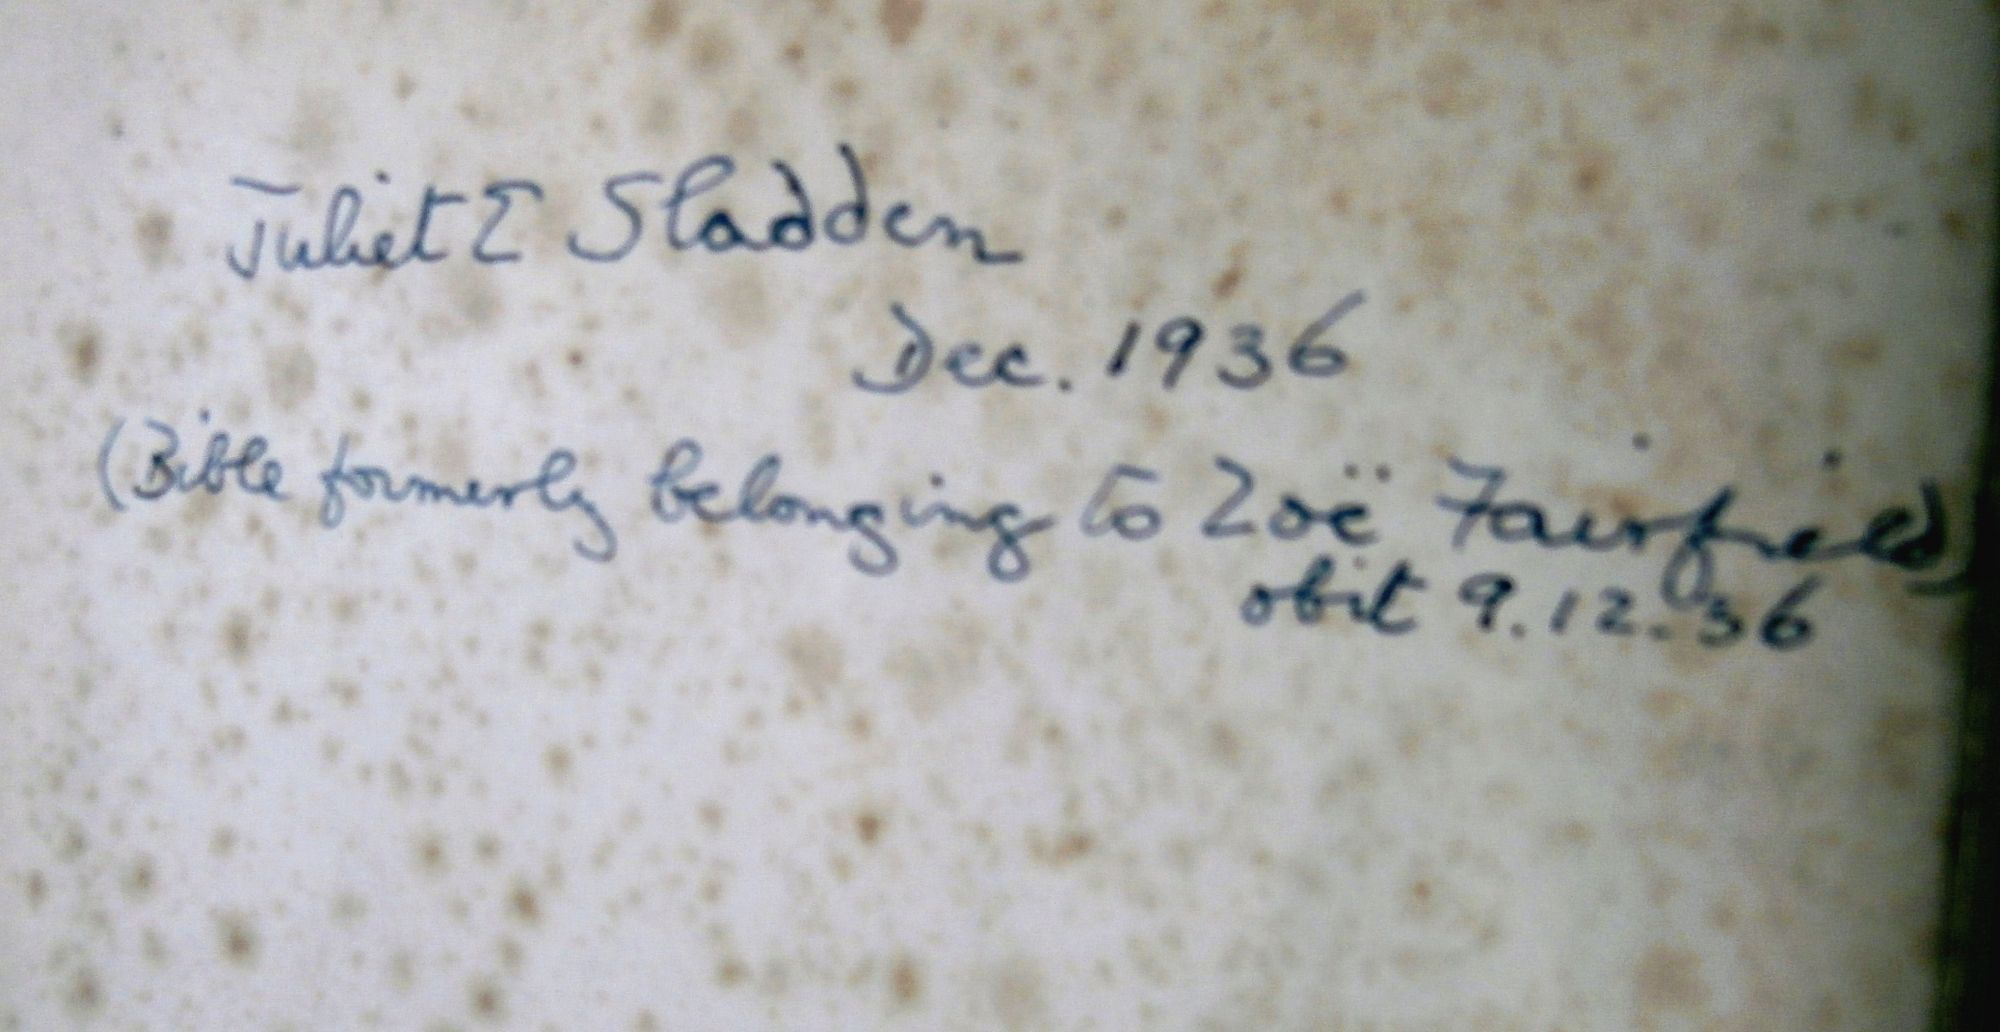 Juliet E Sladden
Dec. 1936
(Bible formerly belonging to Zoë Fairfield)
obit 9.12.36